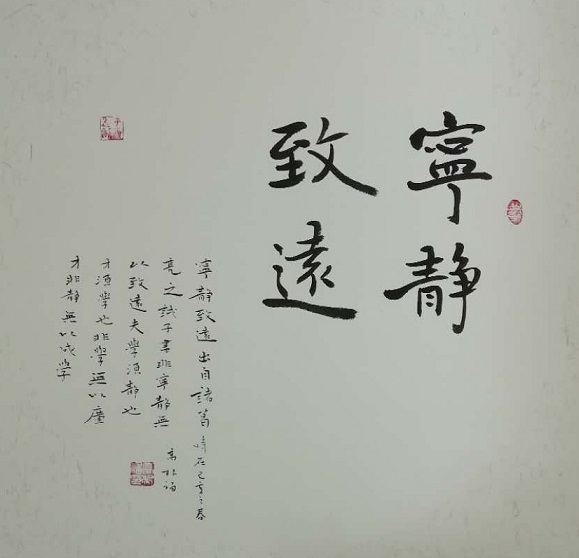 寧静
致遠
寧静致遠出自諸葛
亮之誡子書非寧静無
以致遠夫學須静也
才須學也非學無以廣
才非静無以成學
時在己亥之春